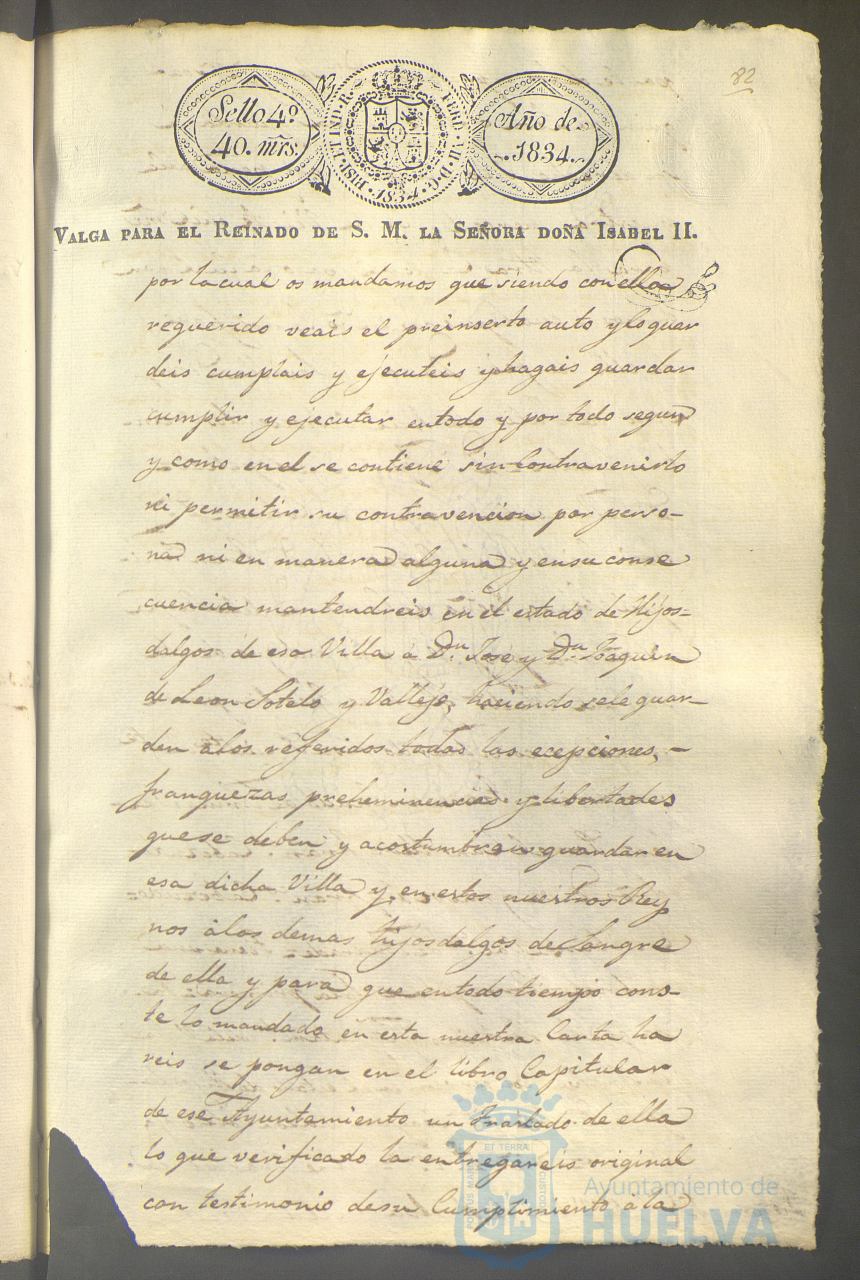 82
Sello 4º
40. mrs.
HISP. ET IND. R. FERD. VII. D. G. 1834
Año de
1834.
VALGA PARA EL REINADO DE S. M. LA SEÑORA DOÑA ISABEL II.
por la cual os mandamos que siendo con ella
requerido veais el preinserto auto y lo guar
deis cumplais y ejecuteis y hagais guardar
cumplir y ejecutar en todo y por todo segun
y como en el se contiene sin contravenirlo
ni permitir su contravencion por perso-
na ni en manera alguna y en su conse
cuencia mantendreis en el estado de Hijos-
dalgos de esa Villa á Dn. Jose y Dn. Joaquin
de Leon Sotelo y Vallejo, haciendo se le guar-
den á los referidos todas las ecepciones, -
franquezas preheminencias y libertades
que se deben y acostumbrais guardar en
esa dicha Villa y en estos nuestros Rey
nos á los demas hijosdalgos de Sangre
de ella y para que en todo tiempo cons-
te lo mandado en esta nuestra Carta ha
reis se pongan en el libro Capitular
de ese Ayuntamiento un traslado de ella
lo que verificado la entregareis original
con testimonio de su Cumplimiento á la
ET TERRA
Ayuntamiento de
HUELVA